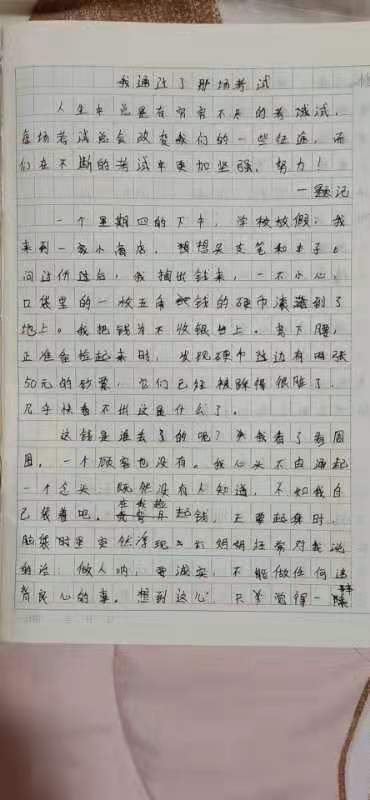 我通过了那场考试
人生中总是在有考不尽的考试,
每场考试总会改变我们的一些征途,而
们在不断的考试中更加坚强,努力!
一题记
一个星期四的下午,学校放假,我
来到一家小商店,想想买支笔和本子。
问过价钱后,我掏出钱来,一不小心,
口袋里的一枚五角钱的硬币滚落到了
地上。我把钱放在收银台上。弯下腰,
正准备捡起来时,发现硬币旁边有两张
50元的钞票,它们已经被踩得很脏了,
几乎快看不出这是什么了。
这钱是谁丢了的呢?我看了看周
围,一个顾客也没有。我心头不由涌起
一个念头,既然没有人知道,不如我自
己装着吧。在我捡起钱,正要起身时,
脑袋时里突然浮现出妈妈经常对我说
的话:做人呐,要诚实,不能做任何违
背良心的事。想到这儿,只觉得一阵